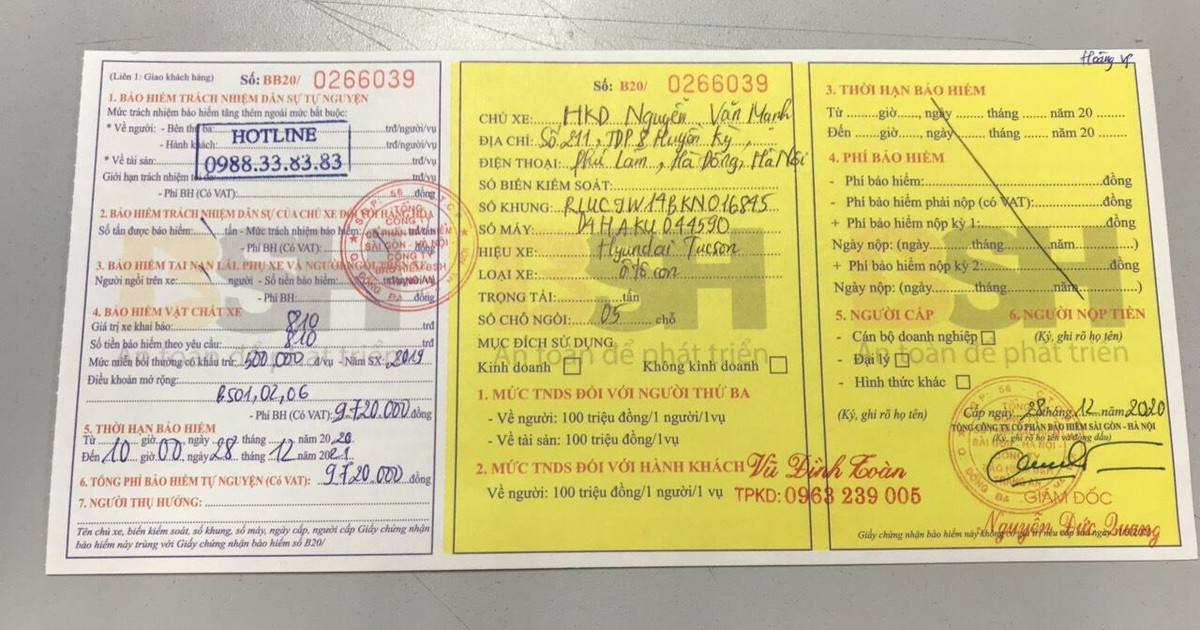 (Liên 1: Giao khách hàng) Số: BB20/ 0266039
1. BẢO HIỂM TRÁCH NHIỆM DÂN SỰ TỰ NGUYỆN
Mức trách nhiệm bảo hiểm tăng thêm ngoài mức bắt buộc:
* Về người: - Bên thứ ba: trđ/người/vụ
- Hành khách: trđ/người/vụ
* Về tài sản: trđ/vụ
HOTLINE
0988.33.83.83
Giới hạn trách nhiệm trđ/vụ
- Phí BH (Có VAT): đồng
2. BẢO HIỂM TRÁCH NHIỆM DÂN SỰ CỦA CHỦ XE ĐỐI VỚI HÀNG HÓA
Số tấn được bảo hiểm: tấn - Mức trách nhiệm bảo hiểm: trđ/tấn
- Phí BH (Có VAT): đồng
3. BẢO HIỂM TAI NẠN LÁI, PHỤ XE VÀ NGƯỜI NGỒI TRÊN XE
Người ngồi trên xe: người - Số tiền bảo hiểm: trđ/người/vụ
- Phí BH: đồng
4. BẢO HIỂM VẬT CHẤT XE
Giá trị xe khai báo: 810 trđ
Số tiền bảo hiểm theo yêu cầu: 810 trđ
Mức miễn bồi thường có khấu trừ: 500.000 đ/vụ - Năm SX: 2019
Điều khoản mở rộng:
BS01, 02, 06
- Phí BH (Có VAT): 9.720.000 đồng
5. THỜI HẠN BẢO HIỂM
Từ giờ ngày 28 tháng 12 năm 2020
Đến 10 giờ 00, ngày 28 tháng 12 năm 2021
6. TỔNG PHÍ BẢO HIỂM TỰ NGUYỆN (Có VAT): 9720.000 đồng
7. NGƯỜI THỤ HƯỞNG:
Tên chủ xe, biển kiểm soát, số khung, số máy, ngày cấp, người cấp Giấy chứng nhận
bảo hiểm này trùng với Giấy chứng nhận bảo hiểm số B20/
Số: B20/ 0266039
CHỦ XE: HKD Nguyễn Văn Mạnh
ĐỊA CHỈ: Số 211, TDP 8 Huyền Kỳ,
ĐIỆN THOẠI: Phú Lãm, Hà Đông, Hà Nội
SỐ BIỂN KIỂM SOÁT:
SỐ KHUNG: RLUCJW14BKN016845
SỐ MÁY: D4HAKU044590
HIỆU XE: Hyundai Tucson
LOẠI XE: Ô tô con
TRỌNG TẢI: tấn
SỐ CHỖ NGỒI: 05 chỗ
MỤC ĐÍCH SỬ DỤNG
Kinh doanh Không kinh doanh
1. MỨC TNDS ĐỐI VỚI NGƯỜI THỨ BA
- Về người: 100 triệu đồng/1 người/1vụ
- Về tài sản: 100 triệu đồng/1vụ
2. MỨC TNDS ĐỐI VỚI HÀNH KHÁCH
Về người: 100 triệu đồng/1 người/1 vụ
Vũ Đình Toàn
TPKD: 0963 239 005
3. THỜI HẠN BẢO HIỂM
Từ giờ, ngày tháng năm 20
Đến giờ, ngày tháng năm 20
4. PHÍ BẢO HIỂM
- Phí bảo hiểm: đồng
- Phí bảo hiểm phải nộp (có VAT): đồng
+ Phí bảo hiểm nộp kỳ 1: đồng
Ngày nộp: (ngày tháng năm )
+ Phí bảo hiểm nộp kỳ 2: đồng
Ngày nộp: (ngày tháng năm )
5. NGƯỜI CẤP 6. NGƯỜI NỘP TIỀN
- Cán bộ doanh nghiệp (Ký, ghi rõ họ tên)
- Đại lý
- Hình thức khác
(Ký, ghi rõ họ tên) Cấp ngày 28 tháng 12 năm 2020
TỔNG CÔNG TY CỔ PHẦN BẢO HIỂM SÀI GÒN - HÀ NỘI
(Ký, ghi rõ họ tên và đóng dấu)
GIÁM ĐỐC
Nguyễn Đức Quang
Giấy chứng nhận bảo hiểm này không có giá trị nếu cấp sau ngày
BSH
An toàn để phát triển
BSH
An toàn để phát triển